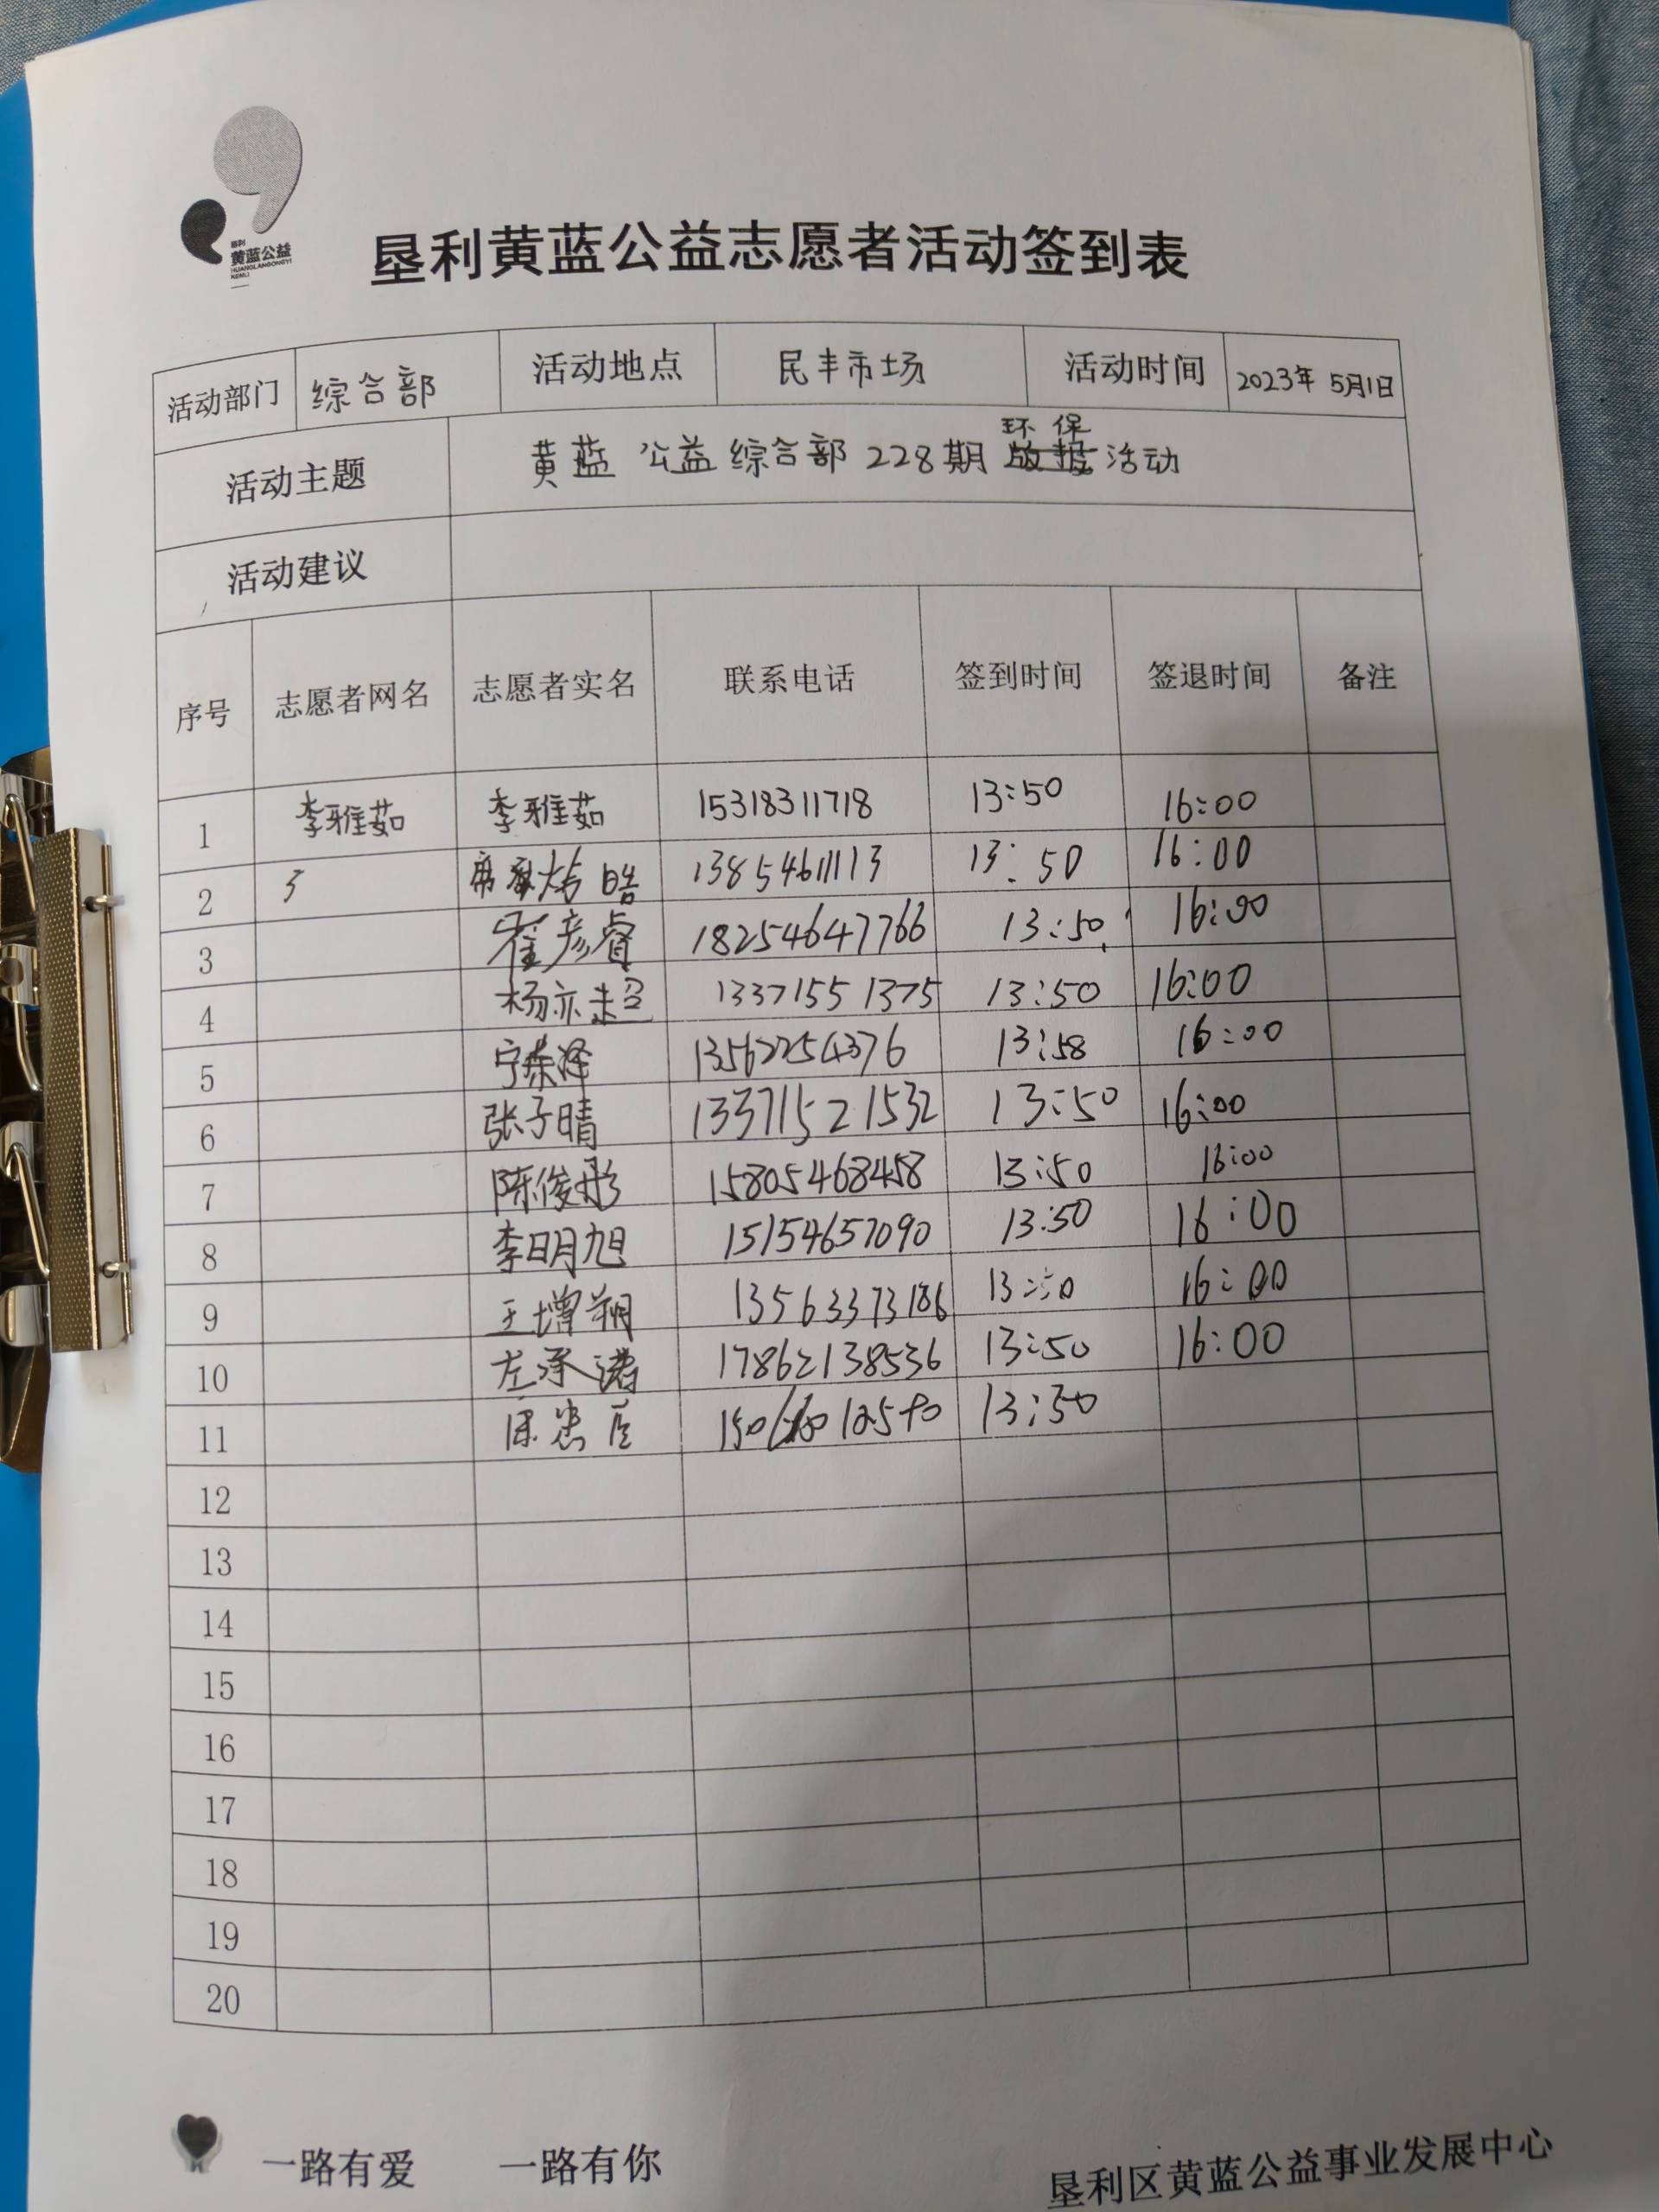 垦利
黄蓝公益
HUANGLANGONGYI
KENLI
垦利黄蓝公益志愿者活动签到表
活动部门 综合部 活动地点 民丰市场 活动时间 2023年 5月1日
环保
活动主题 黄蓝公益综合部228期 活动
活动建议
序号 志愿者网名 志愿者实名 联系电话 签到时间 签退时间 备注
1 李雅茹 李雅茹 15318311718 13:50 16:00
2 皓 13854611113 13:50 16:00
3 霍彦睿 18254647766 13:50 16:00
4 杨亦超 13371551375 13:50 16:00
5 宁 泽 13562254376 13:58 16:00
6 张子晴 13371521532 13:50 16:00
7 陈俊彤 15805468458 13:50 16:00
8 李明旭 15154657090 13:50 16:00
9 王增翔 13563373186 13:50 16:00
10 左承诺 17862138536 13:50 16:00
11 13:50
12
13
14
15
16
17
18
19
20
一路有爱 一路有你
垦利区黄蓝公益事业发展中心